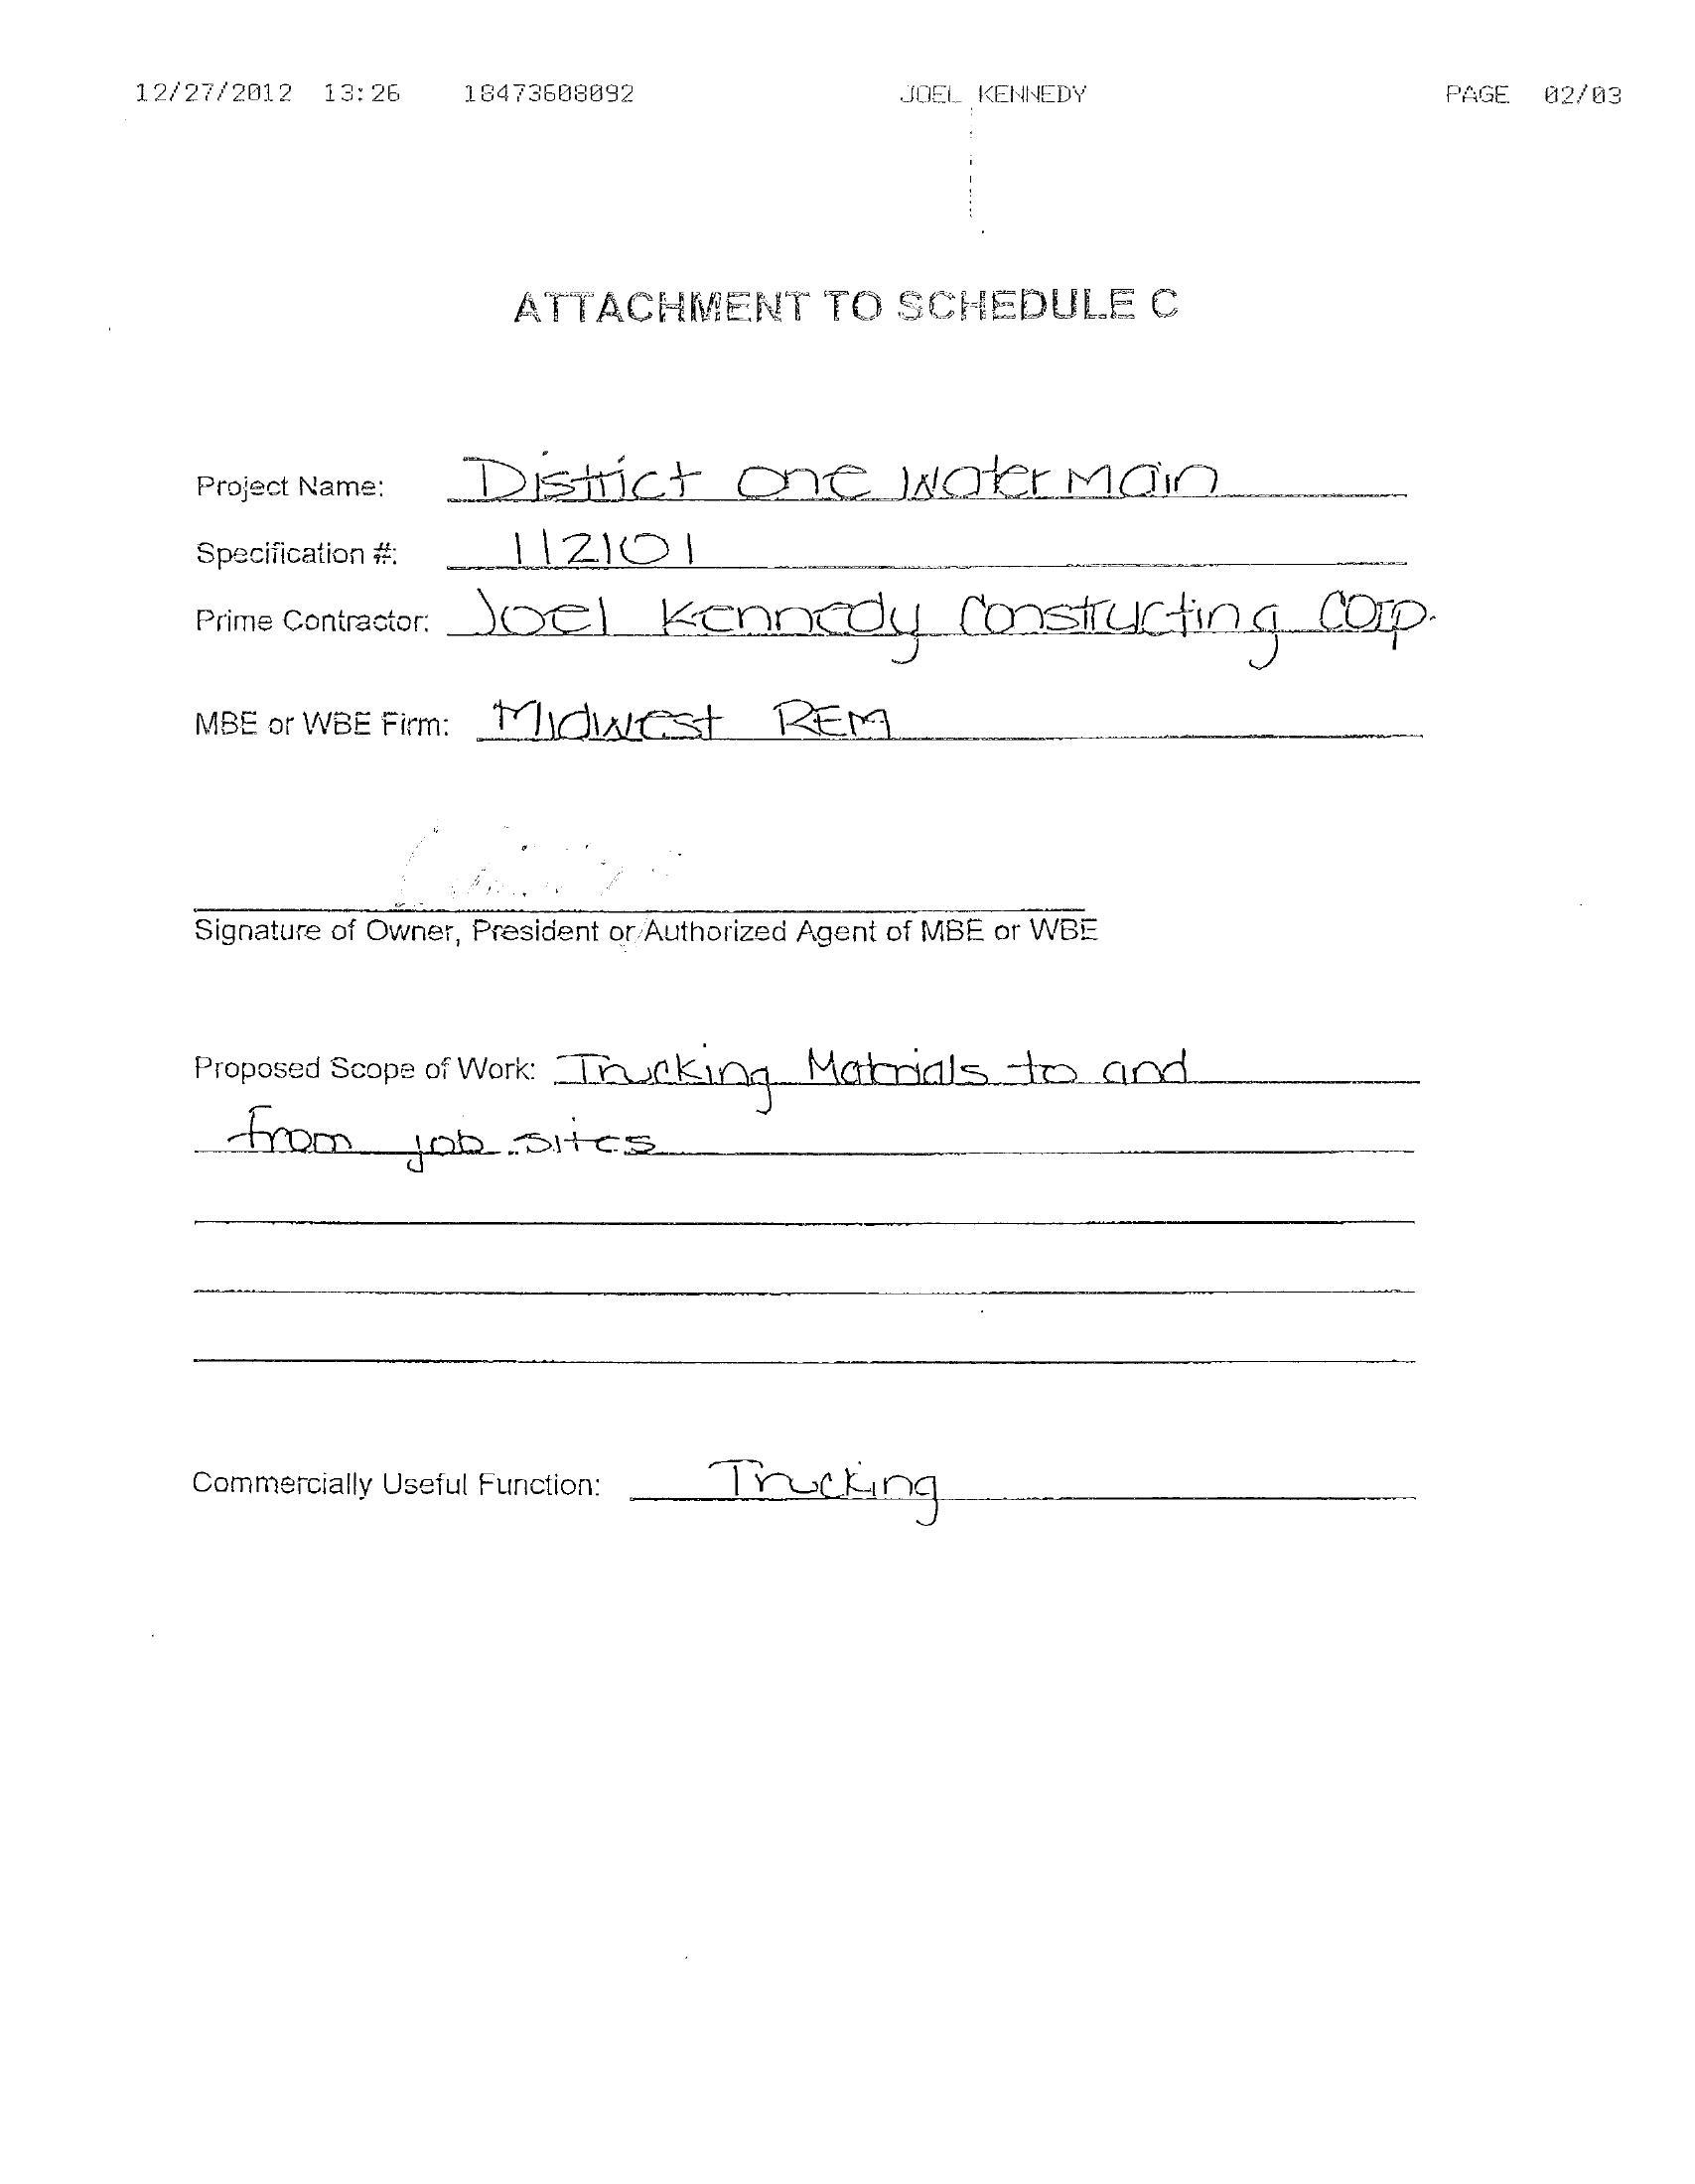 12/27/2012 13:26 18473608092 JOEL KENNEDY PAGE 02/03
ATTACHMENT TO SCHEDULE C
Project Name: District one Water Main
Specification #: 112101
Prime Contractor: Joel Kennedy Constructing Corp.
MBE or WBE Firm: Midwest REM
Signature of Owner, President or Authorized Agent of MBE or WBE
Proposed Scope of Work: Trucking Materials to and
from job sites
Commercially Useful Function: Trucking